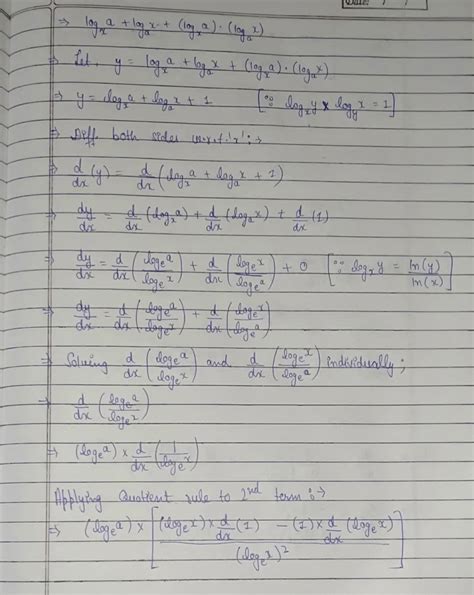 Date: / /
⇒ logₓa + logₐx + (logₓa)·(logₐx)
⇒ Let, y = logₓa + logₐx + (logₓa)·(logₐx)
⇒ y = logₓa + logₐx + 1 [∵ logₓy × log_y x = 1]
⇒ Diff. both sides w.r.t. 'x' :→
⇒ d/dx (y) = d/dx (logₓa + logₐx + 1)
⇒ dy/dx = d/dx (logₓa) + d/dx (logₐx) + d/dx (1)
⇒ dy/dx = d/dx (logₑa / logₑx) + d/dx (logₑx / logₑa) + 0 [∵ logₓy = ln(y)/ln(x)]
⇒ dy/dx = d/dx (logₑa / logₑx) + d/dx (logₑx / logₑa)
⇒ Solving d/dx (logₑa / logₑx) and d/dx (logₑx / logₑa) individually;
⇒ d/dx (logₑa / logₑx)
⇒ (logₑa) × d/dx (1 / logₑx)
Applying Quotient rule to 2nd term :→
⇒ (logₑa) × [((logₑx) × d/dx (1) − (1) × d/dx (logₑx)) / (logₑx)²]